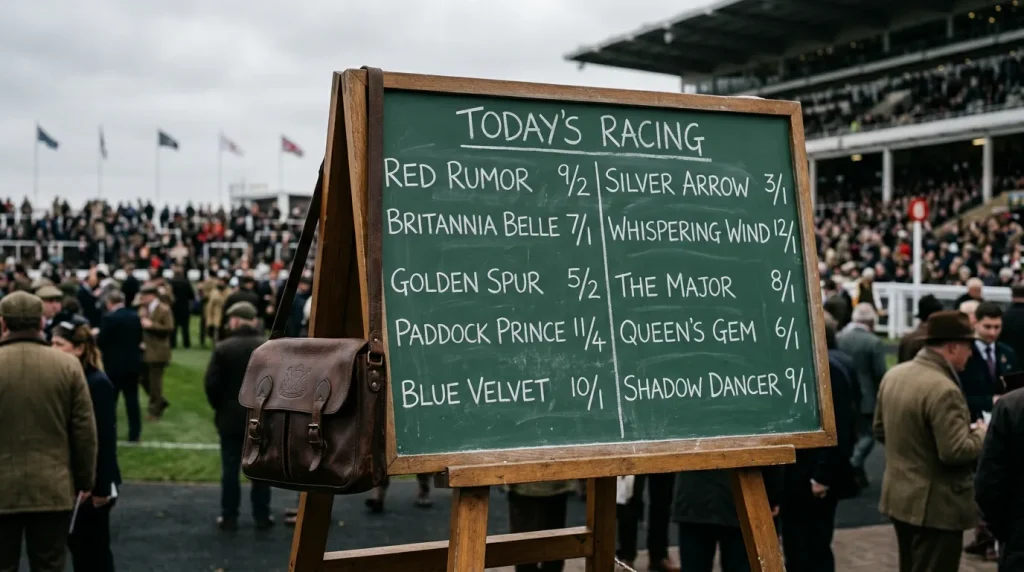 TODAY'S RACING
RED RUMOR 9/2
BRITANNIA BELLE 7/1
GOLDEN SPUR 5/2
PADDOCK PRINCE 11/4
BLUE VELVET 10/1
SILVER ARROW 3/1
WHISPERING WIND 12/1
THE MAJOR 8/1
QUEEN'S GEM 6/1
SHADOW DANCER 9/1